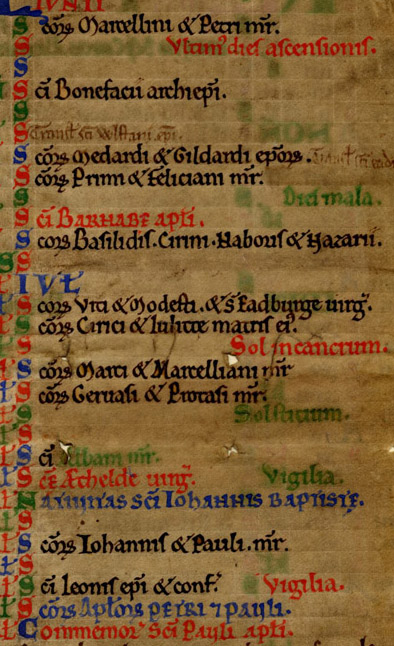 IVNII
S coꝝ Marcellini & Petri mr̄.
S Vltim' dies ascensionis.
S
S
S c̄i Bonefacii archiep̄i.
S
S Transl̄ sc̄i Wlstani ep̄i.
S coꝝ Medardi & Gildardi ep̄oꝝ. Transl̄ sc̄i
S coꝝ Primi & Feliciani mr̄.
S Dies mala.
S c̄i BARNABĘ apl̄i.
S coꝝ Basilidis. Cirini. Naboris & Nazarii.
S
IVL̄
S coꝝ Viti & Modesti. & s̄ Eadburge uirḡ.
S coꝝ Cirici & Iulitte matris ei'.
S Sol in cancrum.
S coꝝ Marci & Marcelliani mr̄
S coꝝ Geruasi & Protasi mr̄.
S Solsticium.
S
S c̄i Albani mr̄.
S c̄e Æthelde uirḡ. Vigilia.
NATIVITAS SC̄I IOHANNIS BAPTISTĘ.
S
S coꝝ Iohannis & Pauli. mr̄.
S
S c̄i leonis ep̄i & conf̄. Vigilia.
S coꝝ Apl̄oꝝ PETRI ⁊ PAULI.
Commemor̄ Sc̄i Pauli apl̄i.